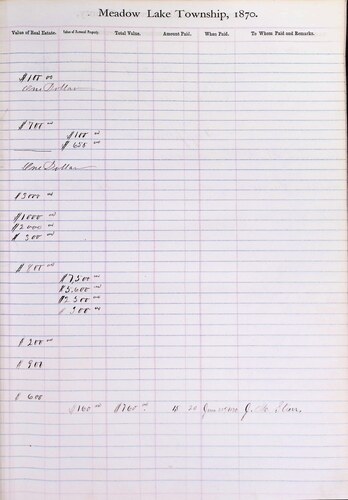 Meadow Lake Township, 1870.
Value of Real Estate. Value of Personal Property. Total Value. Amount Paid. When Paid. To Whom Paid and Remarks.
$100 00
One Dollar
$700 00
$100 00
$650 00
One Dollar
$3000 00
$1000 00
$2000 00
$300 00
$400 00
$7,500 00
$5,600 00
$2500 00
$300 00
$200 00
$
$600
$160 00 $760 00 J.